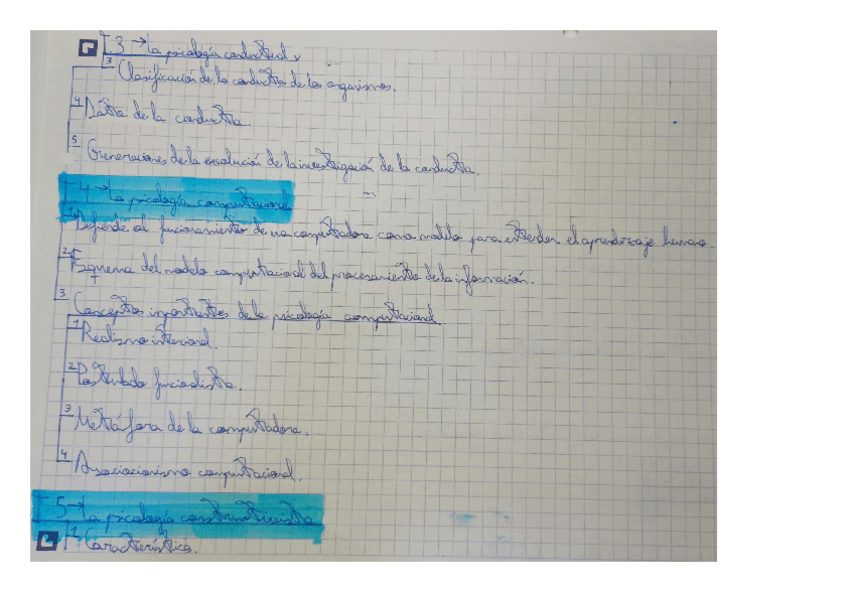 T.3 → La psicología conductual
3 Clasificación de la conducta de los organismos.
4 Data de la conducta.
5 Generaciones de la evolución de la investigación de la conducta.
T 4 → La psicología computacional
1 Defiende el funcionamiento de una computadora como modelo para entender el aprendizaje humano.
2 Esquema del modelo computacional del procesamiento de la información.
3 Conceptos importantes de la psicología computacional.
1 Realismo interional.
2 Postulado funcionalista.
3 Metáfora de la computadora.
4 Asociacionismo computacional.
T 5 → La psicología constructivista
1 Característica.